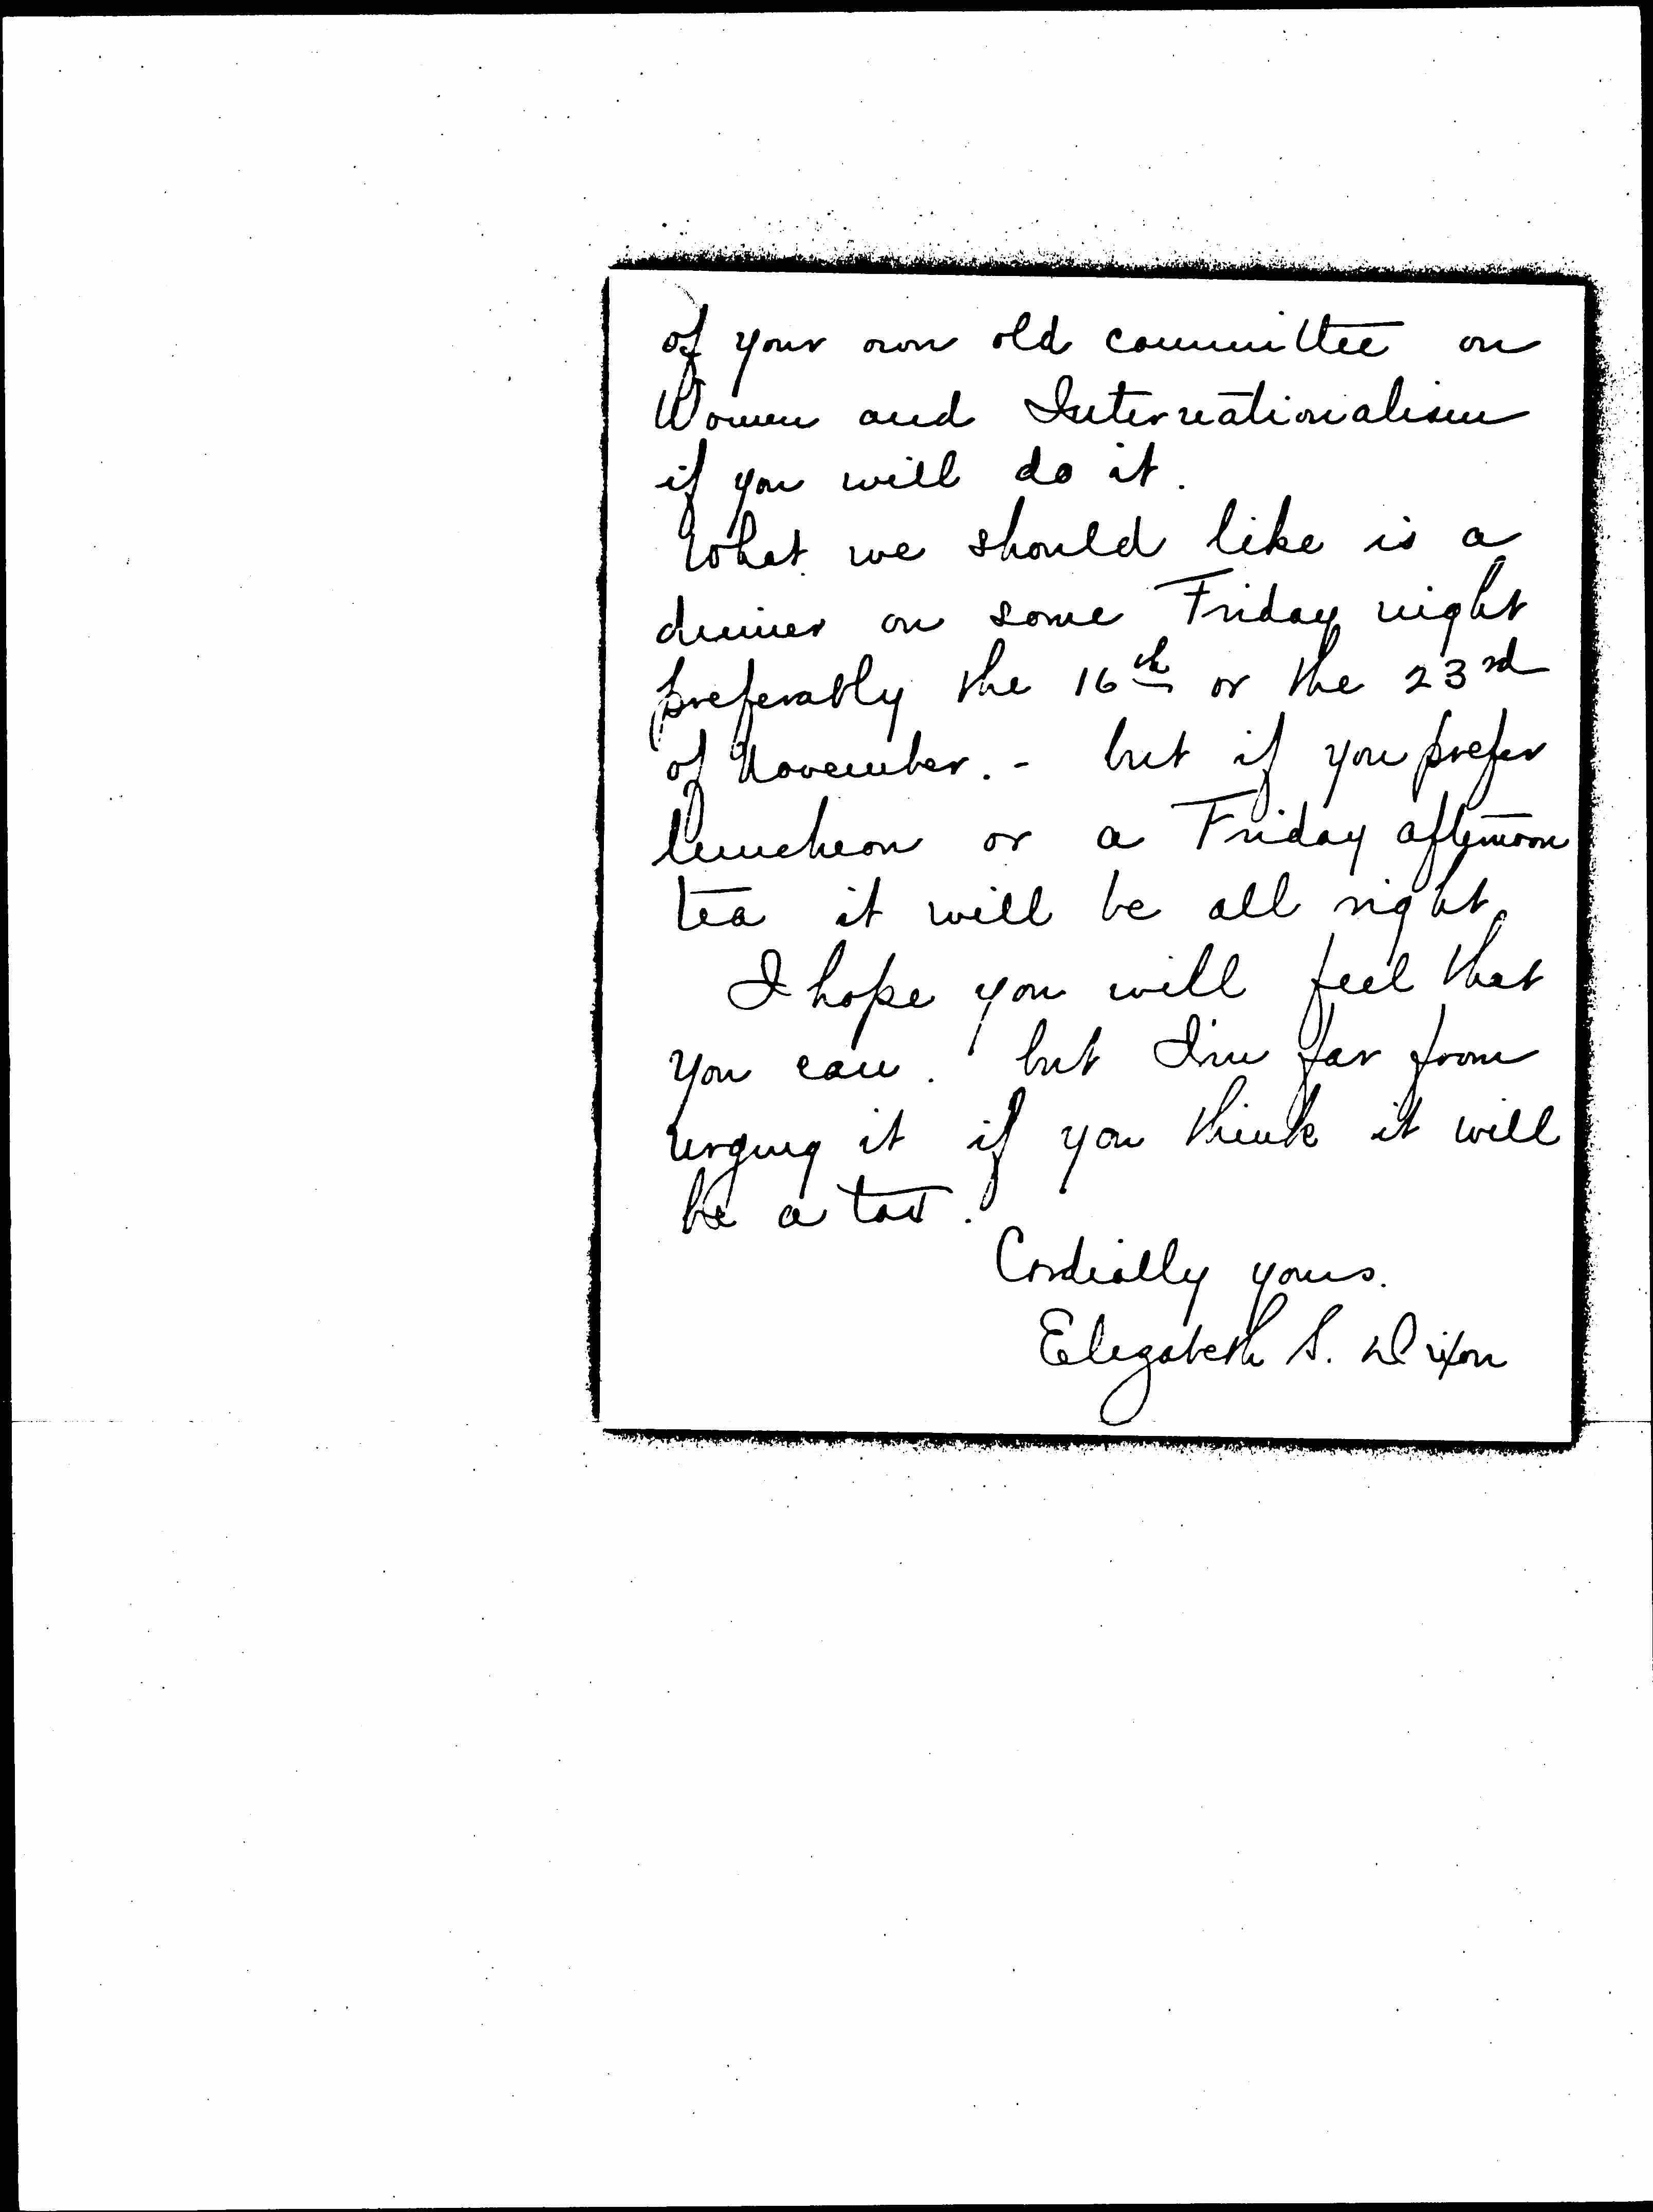 of your own old committee on
Women and Internationalism
if you will do it.
What we should like is a
dinner on some Friday night
preferably the 16th or the 23rd
of November. - but if you prefer
luncheon or a Friday afternoon
tea it will be all right.
I hope you will feel that
you can. but I'm far from
urging it if you think it will
be a tax.
Cordially yours.
Elizabeth S. Dixon